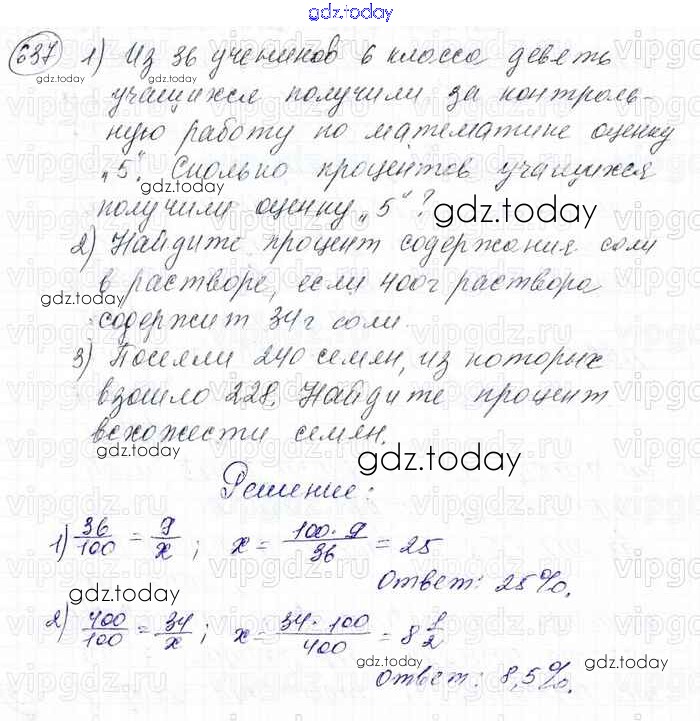 gdz.today
637 1) Из 36 учеников 6 класса девять
учащихся получили за контроль-
ную работу по математике оценку
„5“. Сколько процентов учащихся
получили оценку „5“?
2) Найдите процент содержания соли
в растворе, если 400г раствора
содержит 34г соли.
3) Посеяли 240 семян, из которых
взошло 228. Найдите процент
всхожести семян.
Решение:
1) 36/100 = 9/x ; x = 100·9/36 = 25
Ответ: 25%.
2) 400/100 = 34/x ; x = 34·100/400 = 8 1/2
Ответ: 8,5%.